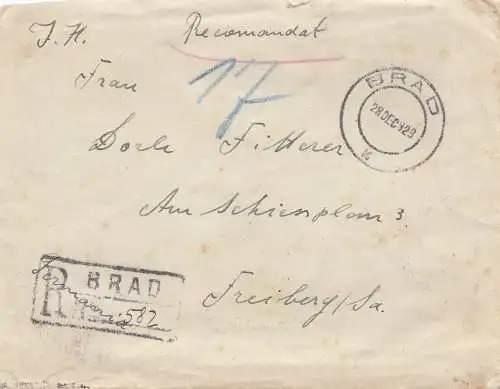 J. H. Recomandat
17
Frau
BRAD
28 DEC 929
Dorle Fitterer
Am Schiessplan 3
R BRAD
Germania 587
Freiberg/Sa.